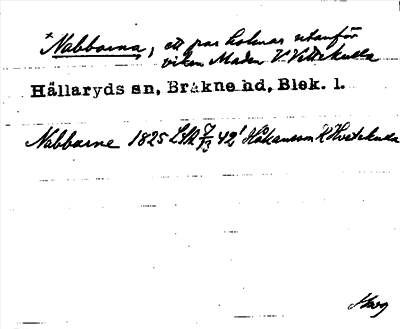 *Nabbarna, ett par holmar utanför
viken Maden V. Vettekulla
Hällaryds sn, Bräkne hd, Blek. l.
Nabbarne 1825 LSA 42¹ Håkansson K Hvetekulla